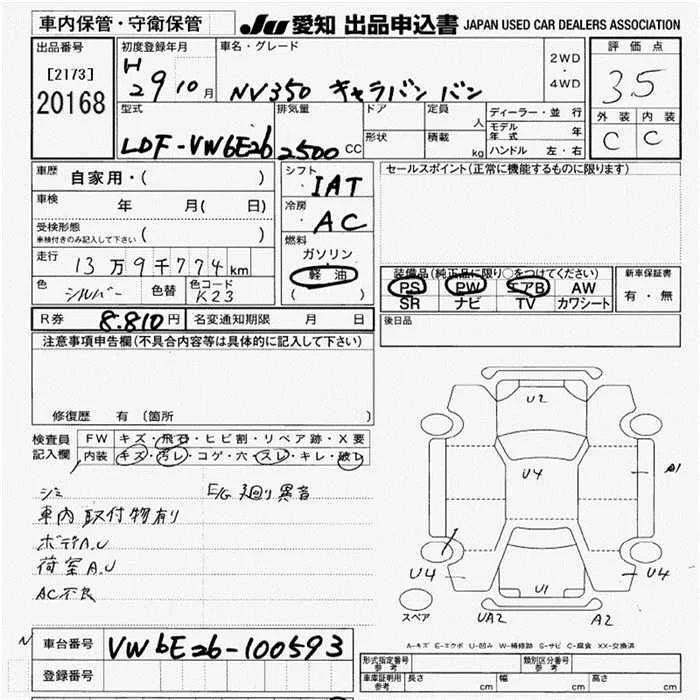 車内保管・守衛保管
JU 愛知 出品申込書 JAPAN USED CAR DEALERS ASSOCIATION
出品番号
[2173]
20168
初度登録年月
H 29 10月
車名・グレード
NV350 キャラバン バン
2WD
・
4WD
評価点
3.5
外装 内装
C C
型式
LDF-VW6E26
排気量
2500 CC
ドア
形状
定員
人
積載
kg
ディーラー・並行
モデル年式 年
ハンドル 左・右
車歴 自家用・( )
車検 年 月( 日)
受検形態
車検付きのみ記入して下さい ( )
走行 13万9千774km
色 シルバー 色替 色コード K23
シフト
・IAT
冷房
・AC
燃料
ガソリン
軽油
( )
セールスポイント(正常に機能するものに限ります)
装備品(純正品に限り○をつけてください)
PS PW エアB AW
SR ナビ TV カワシート
新車保証書
有・無
R券 8.810円 名変通知期限 月 日
後日品
注意事項申告欄(不具合内容等は具体的に記入して下さい)
修復歴 有〔箇所
検査員記入欄
FW キズ・飛石・ヒビ割・リペア跡・X要
内装 キズ・汚レ・コゲ・穴・スレ・キレ・破レ
シミ E/G廻り異音
車内取付物有り
ボディA.U
荷室A.U
AC不良
U2
U4
A1
U4
U4
U1
UA2
A2
スペア
A-キズ E-エクボ U-凹み W-補修跡 S-サビ C-腐食 XX-交換済
車台番号 VW6E26-100593
登録番号
形式指定番号 参考
類別区分番号 参考
車庫証明用 参考 長さ cm 幅 cm 高さ cm